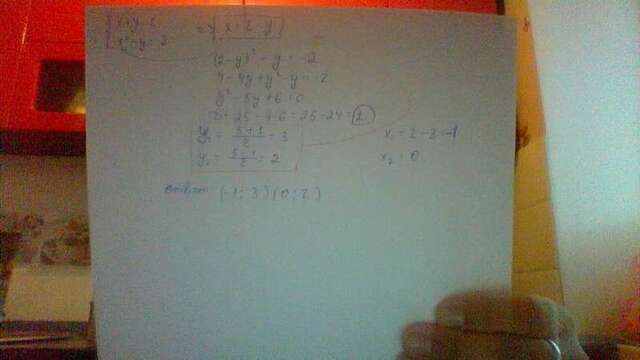 x+y=2 => x=2-y
x²-y=-2
(2-y)²-y=-2
4-4y+y²-y=-2
y²-5y+6=0
D=25-4·6=25-24=1
y₁=(5+1)/2=3 x₁=2-3=-1
y₂=(5-1)/2=2 x₂=0
ответ: (-1;3)(0;2)